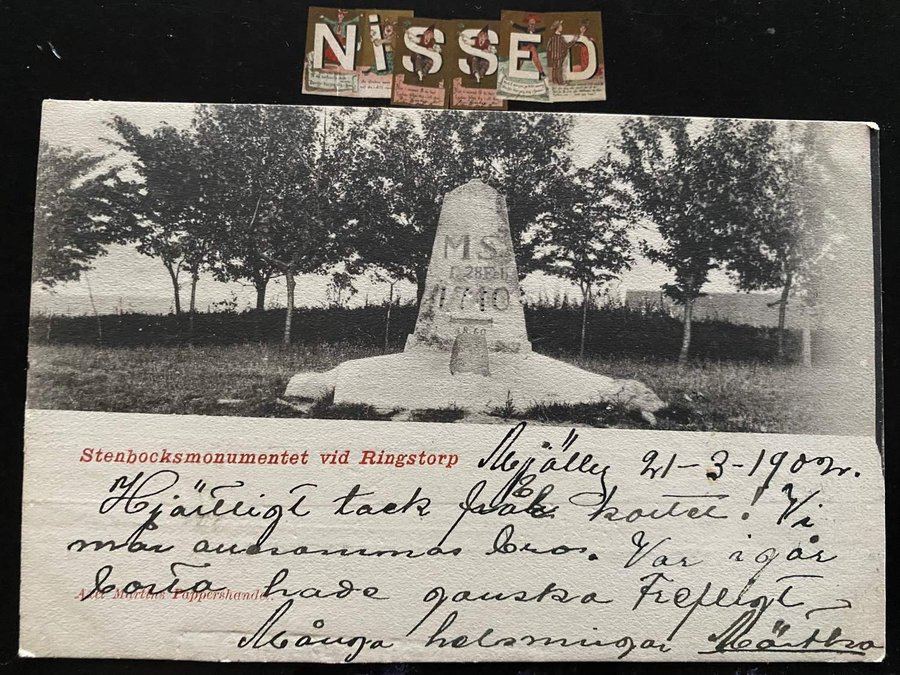 NiSSED
MS
D. 28 Feb.
1710
1860
Stenbocksmonumentet vid Ringstorp
Mjölby 21-3-1902.
Hjärtligt tack för kortet! Vi
mår allesammas bra. Var igår
borta hade ganska trefligt
Axel Martins Pappershandel
Många helsningar Märtha